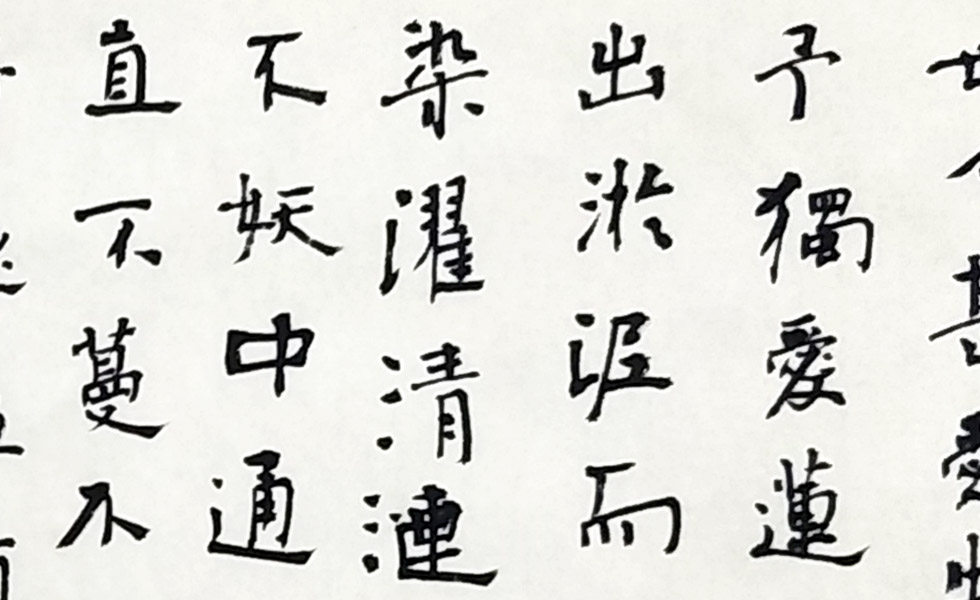 予獨愛蓮
出淤泥而
染濯清漣
不妖中通
直不蔓不